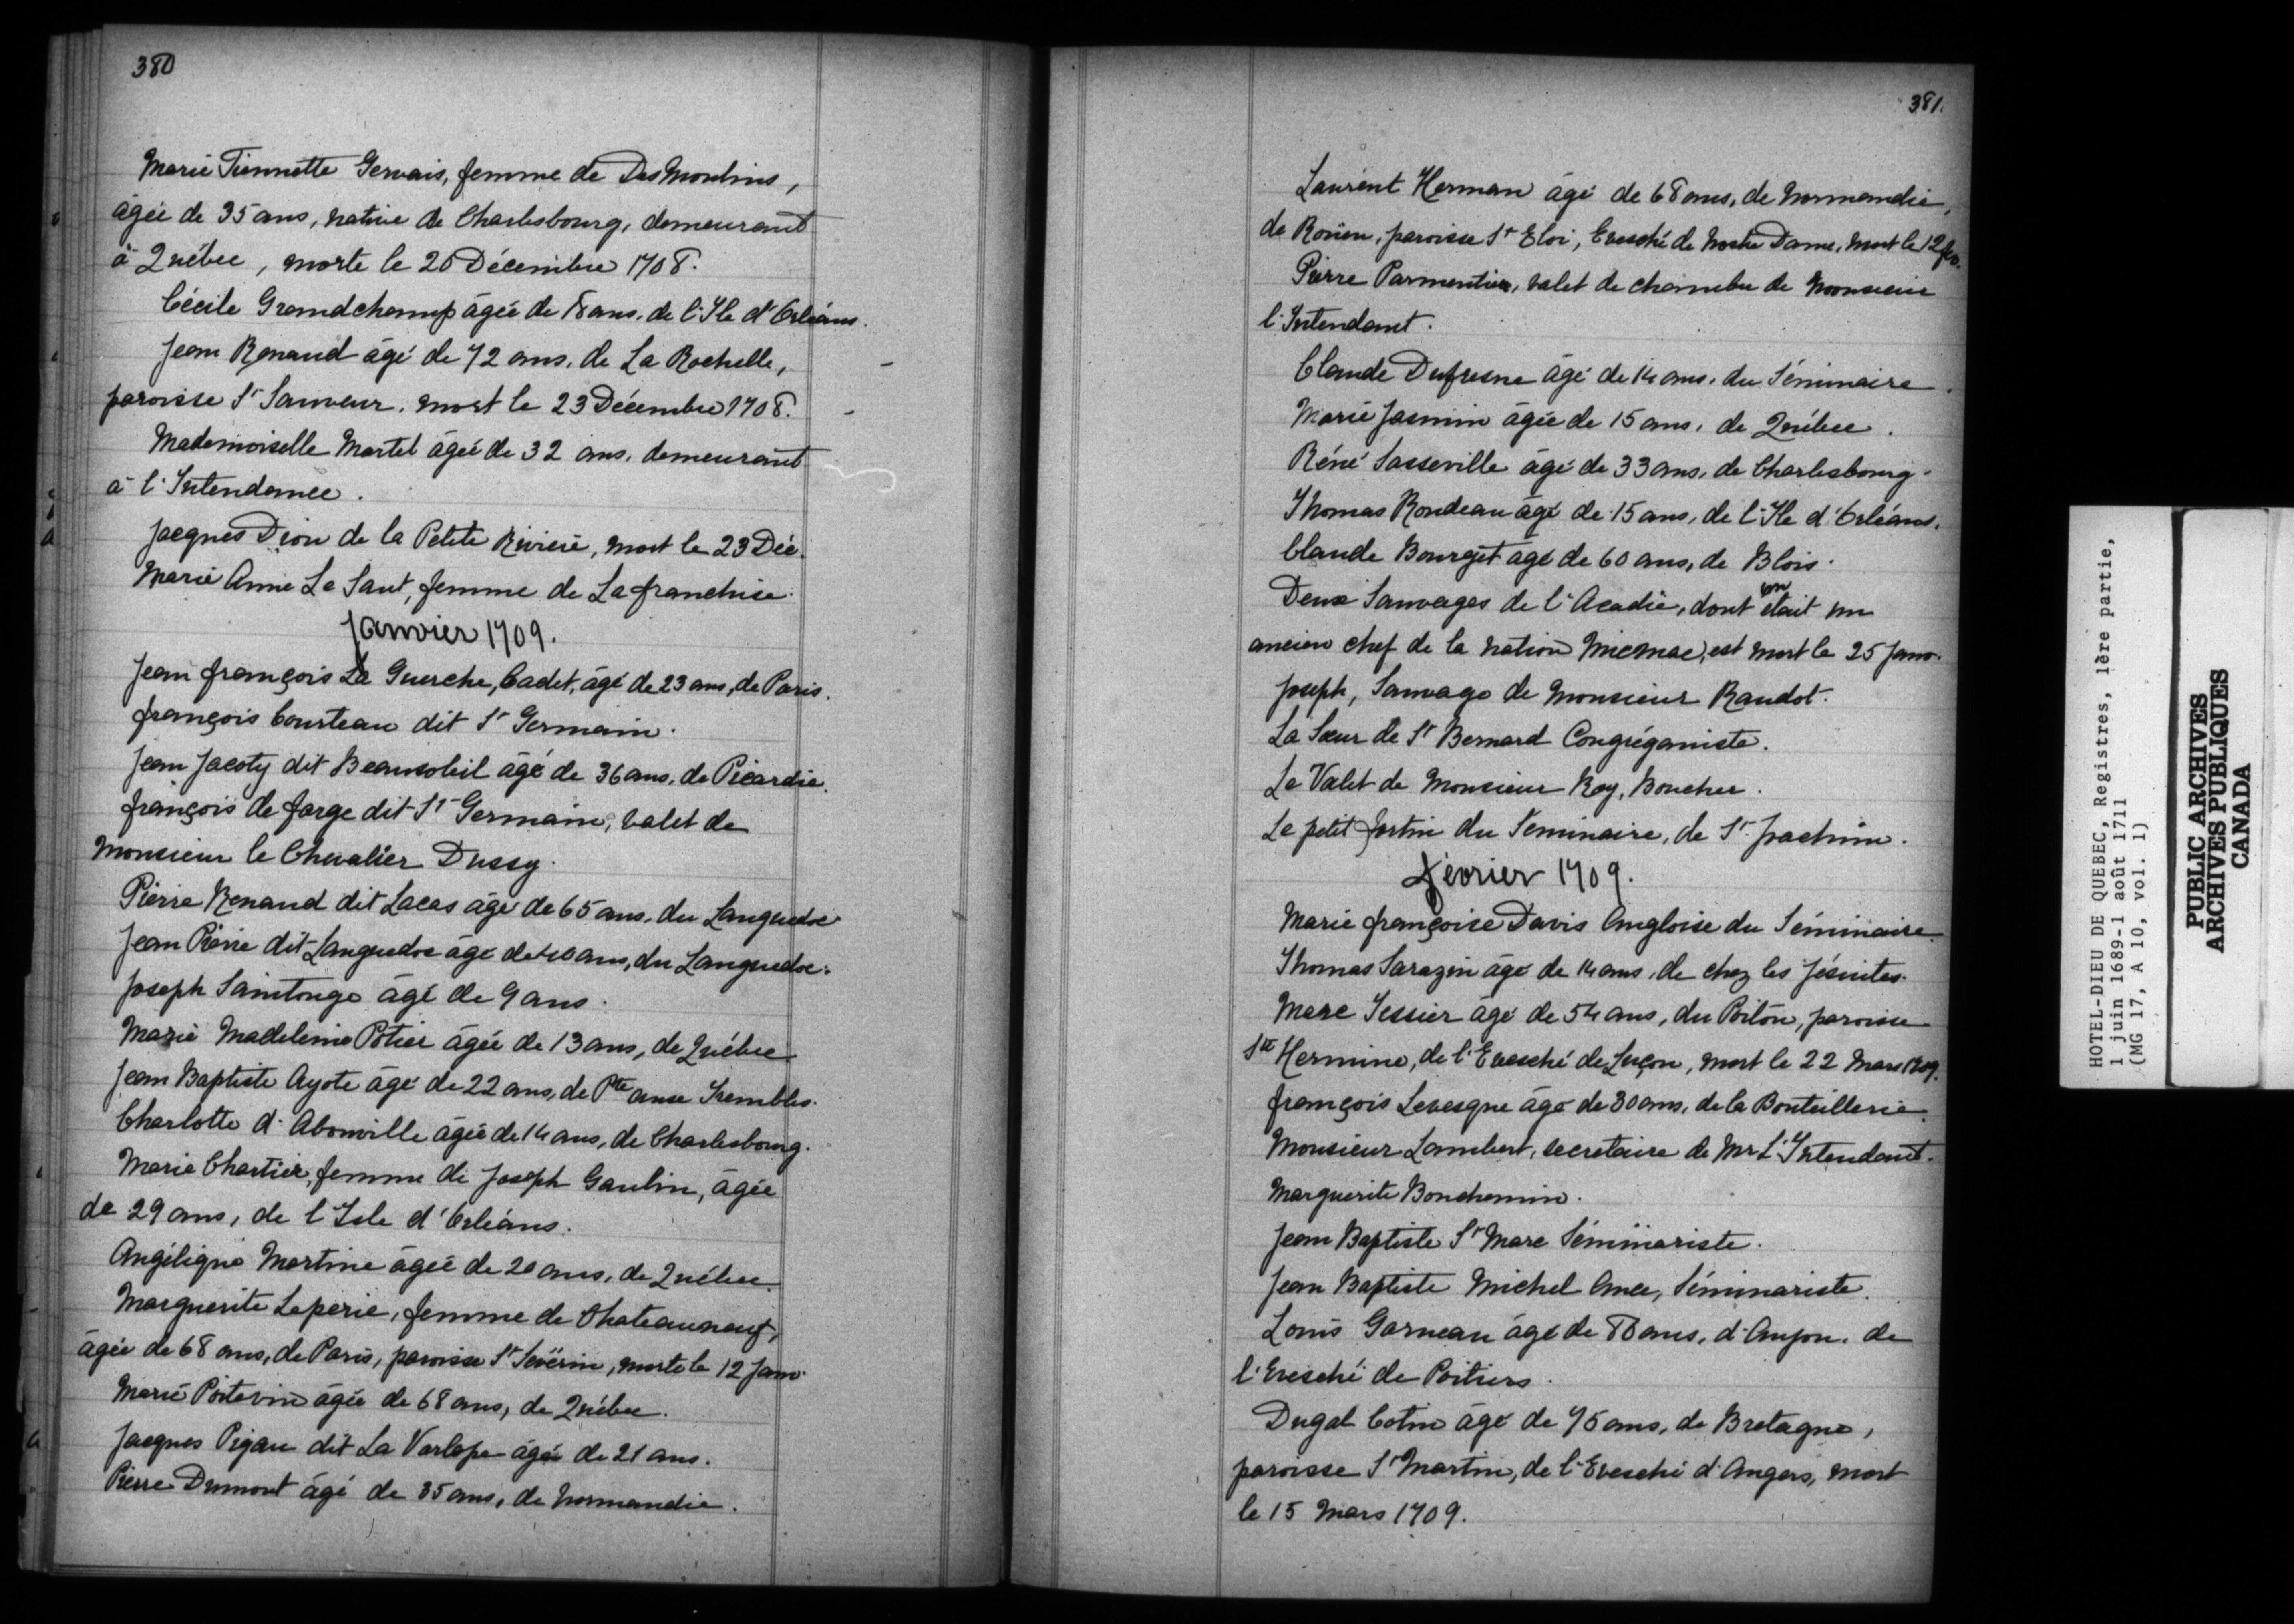 380
Marie Tiennette Gervais, femme de DesMoulins,
âgée de 35 ans, native de Charlesbourg, demeurant
à Québec, morte le 20 Décembre 1708.
Cécile Grandchamp âgée de 18 ans, de l'Ile d'Orléans.
Jean Renaud âgé de 72 ans, de La Rochelle,
paroisse St Sauveur, mort le 23 Décembre 1708.
Mademoiselle Martel âgée de 32 ans, demeurant
à l'Intendance.
Jacques Dion de la Petite Rivière, mort le 23 Déc.
Marie Anne Le Saut, femme de La franchise.
Janvier 1709.
Jean françois La Guerche, Cadet, âgé de 23 ans, de Paris.
françois Courteau dit St Germain.
Jean Jacoty dit Beausoleil âgé de 36 ans, de Picardie.
françois de farge dit St Germain, valet de
Monsieur le Chevalier Dussy.
Pierre Renaud dit Locas âgé de 65 ans, du Languedoc
Jean Pierre dit Languedoc âgé de 40 ans, du Languedoc.
Joseph Saintonge âgé de 9 ans.
Marie Madeleine Potier âgée de 13 ans, de Québec
Jean Baptiste Ayote âgé de 22 ans, de Pte aux Trembles.
Charlotte d'Abonville âgée de 14 ans, de Charlesbourg.
Marie Chartier, femme de Joseph Gaulin, âgée
de 29 ans, de l'Isle d'Orléans.
Angélique Martine âgée de 20 ans, de Québec.
Marguerite Leperie, femme de Chateauneuf,
âgée de 68 ans, de Paris, paroisse St Sevérin, morte le 12 Janv.
Marie Poitevin âgée de 68 ans, de Québec.
Jacques Pigau dit La Varlope âgée de 21 ans.
Pierre Dumont âgé de 35 ans, de Normandie.
381.
Laurent Herman âgé de 68 ans, de Normandie,
de Roüen, paroisse St Eloi, Evesché de Nostre Dame, mort le 12 fév.
Pierre Parmentier, valet de chambre de Monsieur
l'Intendant.
Claude Dufresne âgé de 14 ans, du Séminaire.
Marie Jasmin âgée de 15 ans, de Québec.
Réné Sasseville âgé de 33 ans, de Charlesbourg.
Thomas Rondeau âgé de 15 ans, de l'Ile d'Orléans.
Claude Bourget âgé de 60 ans, de Blois.
Deux Sauvages de l'Acadie, dont un était un
ancien chef de la nation Micmac, est mort le 25 Janv.
Joseph, Sauvage de Monsieur Raudot.
La Sœur de St Bernard Congréganiste.
Le Valet de Monsieur Roy, Boucher.
Le petit fortin du Séminaire, de St Joachim.
février 1709.
Marie françoise Davis Angloise du Séminaire.
Thomas Sarazin âgé de 14 ans, de chez les Jésuites.
Marc Tessier âgé de 54 ans, du Poitou, paroisse
Ste Hermine, de l'Evesché de Luçon, mort le 22 Mars 1709.
françois Levesque âgé de 30 ans, de la Bouteillerie.
Monsieur Lambert, secretaire de Mr L'Intendant.
Marguerite Bonchemin.
Jean Baptiste St Marc Séminariste.
Jean Baptiste Michel, Séminariste.
Louis Garneau âgé de ans, d'Anjou, de
l'Evesché de Poitiers.
Dugal Cotin âgé de 75 ans, de Bretagne,
paroisse St Martin, de l'Evesché d'Angers, mort
le 15 Mars 1709.
HOTEL-DIEU DE QUEBEC, Registres, 1ère partie,
1 juin 1689-1 août 1711
(MG 17, A 10, vol. 1)
PUBLIC ARCHIVES
ARCHIVES PUBLIQUES
CANADA